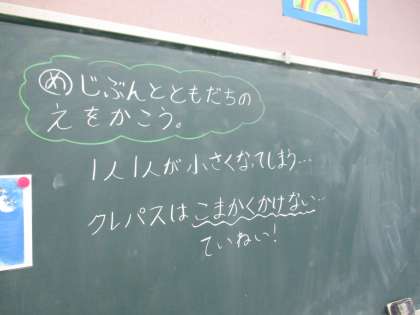 めじぶんとともだちの
えをかこう。
1人1人が小さくなってしまう…
クレパスはこまかくかけない…
ていねい!